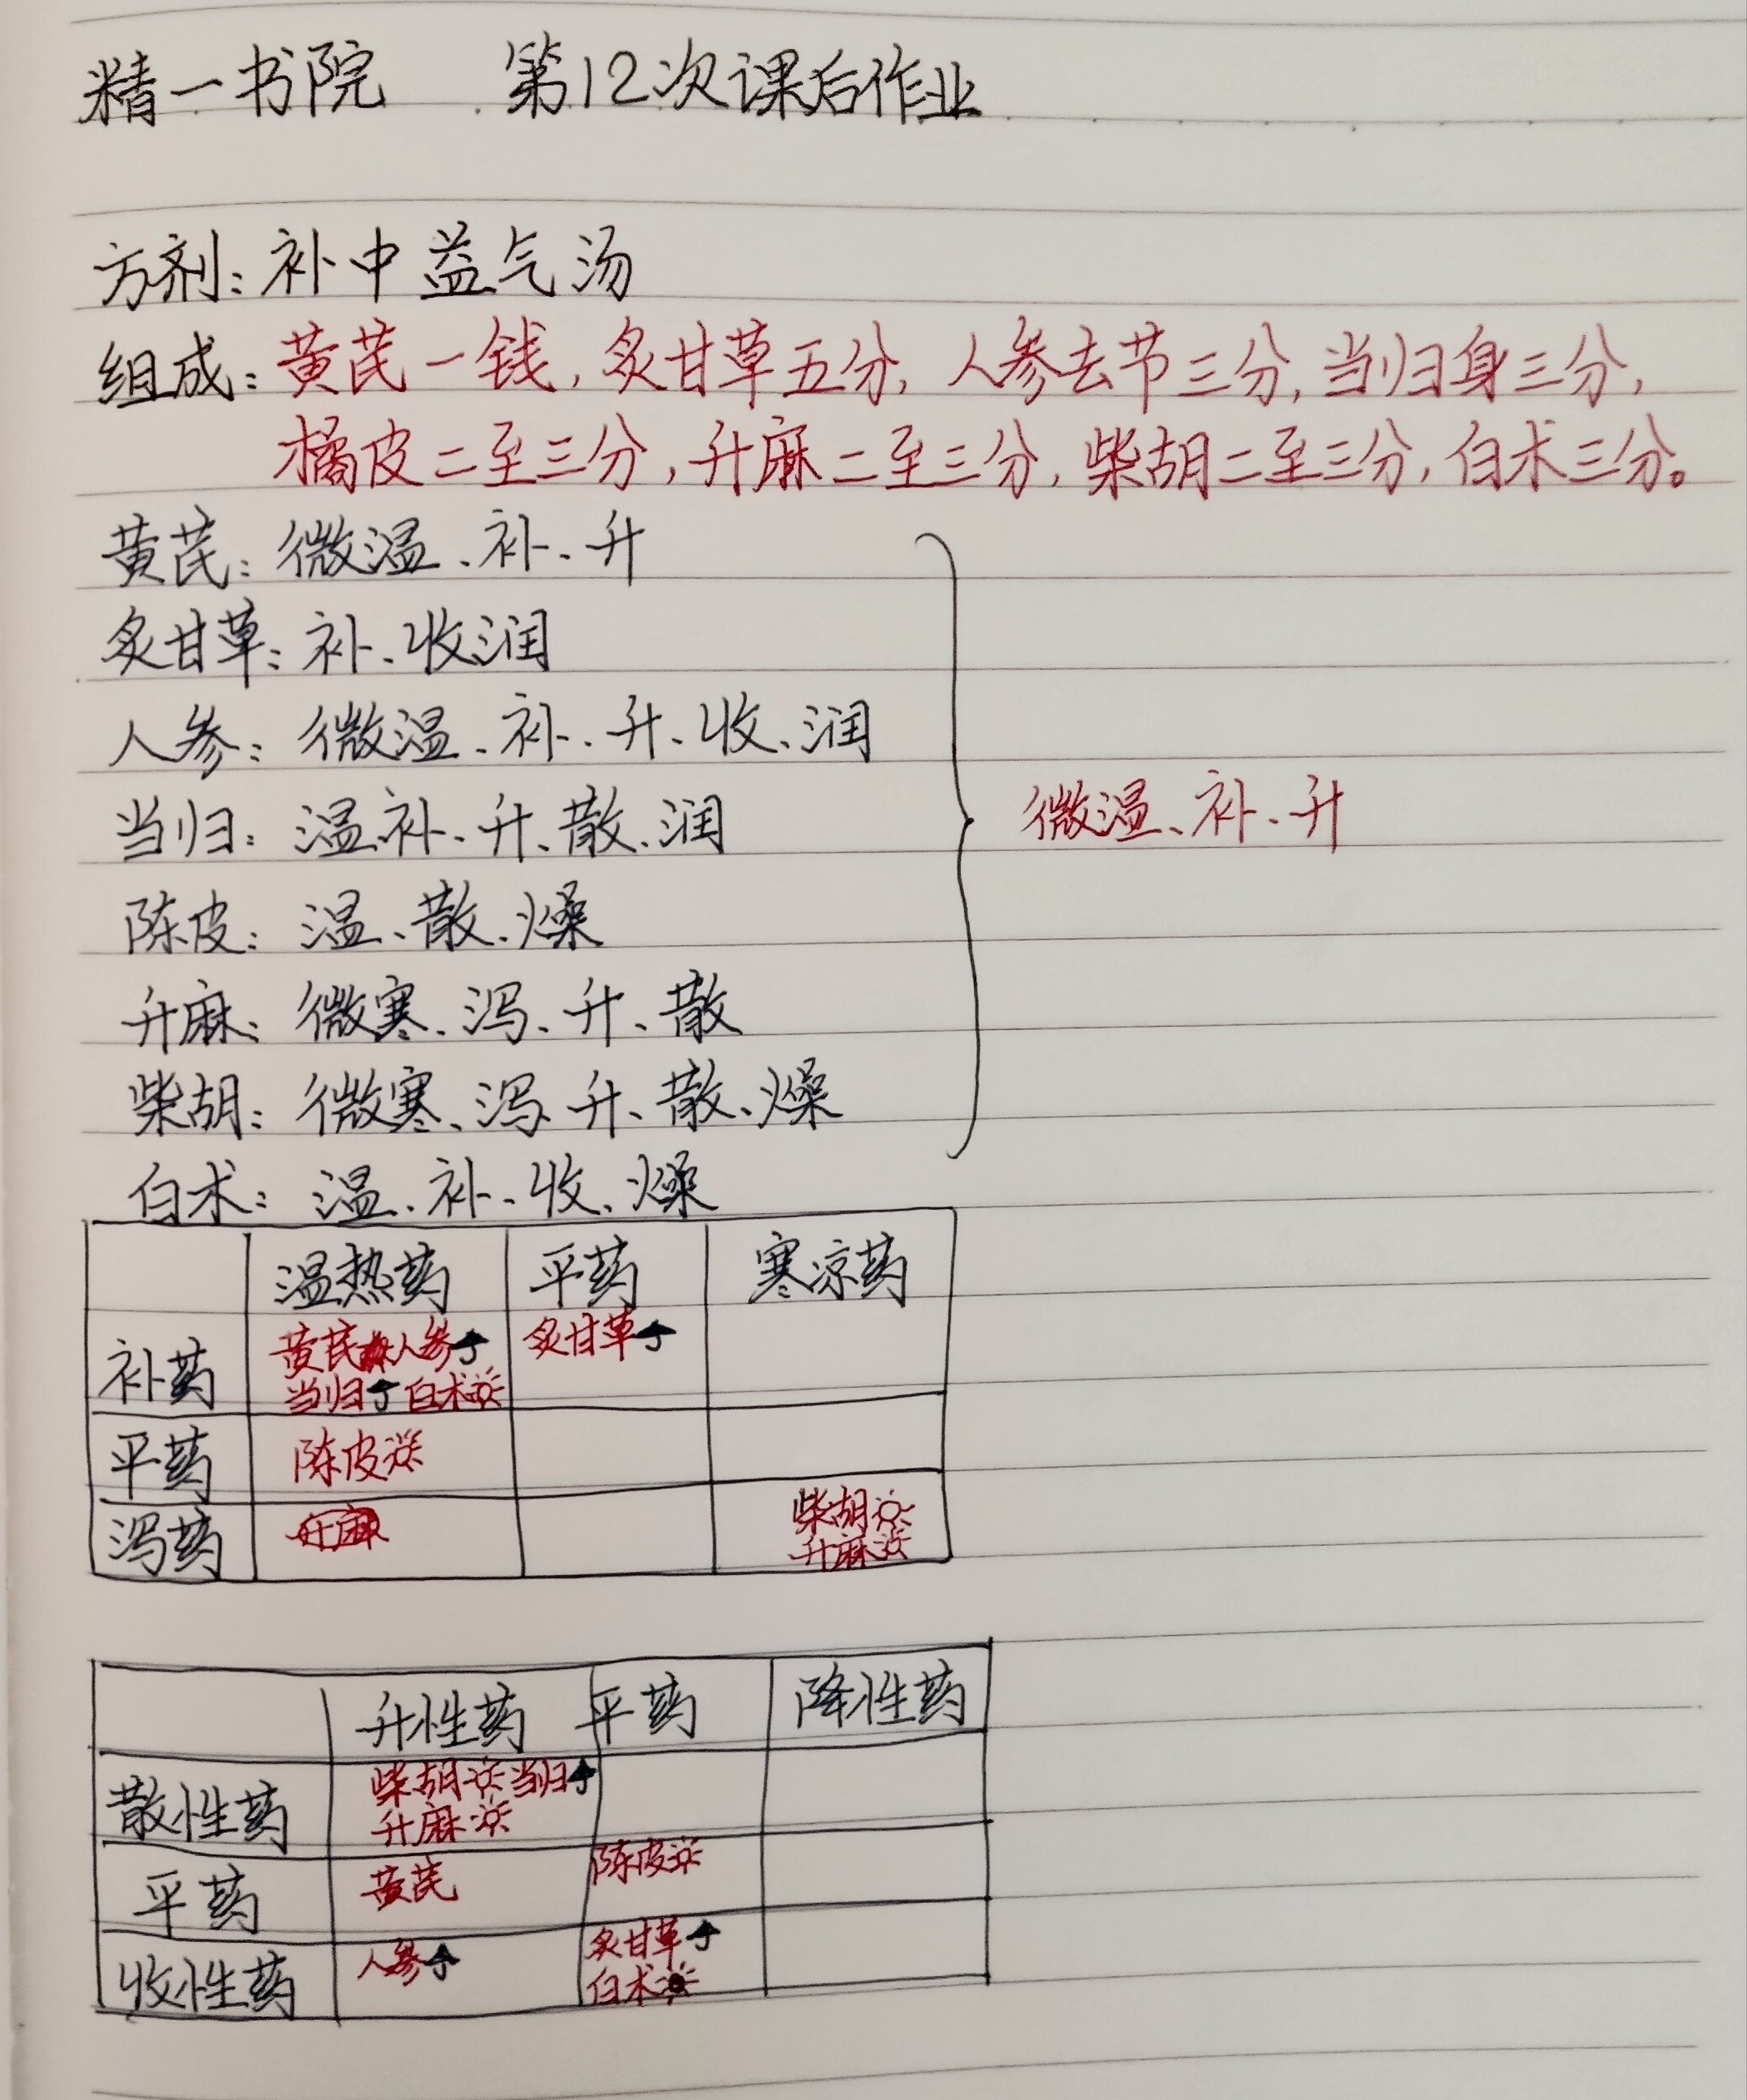 精一书院 第12次课后作业
方剂：补中益气汤
组成：黄芪一钱，炙甘草五分，人参去节三分，当归身三分，
橘皮二至三分，升麻二至三分，柴胡二至三分，白术三分。
黄芪：微温、补、升
炙甘草：补、收润
人参：微温、补、升、收、润
当归：温、补、升、散、润
微温、补、升
陈皮：温、散、燥
升麻：微寒、泻、升、散
柴胡：微寒、泻、升、散、燥
白术：温、补、收、燥
温热药 平药 寒凉药
补药 黄芪 人参 炙甘草
当归 白术
平药 陈皮
泻药 柴胡
升麻
升性药 平药 降性药
散性药 柴胡 当归
升麻
平药 黄芪 陈皮
收性药 人参 炙甘草
白术